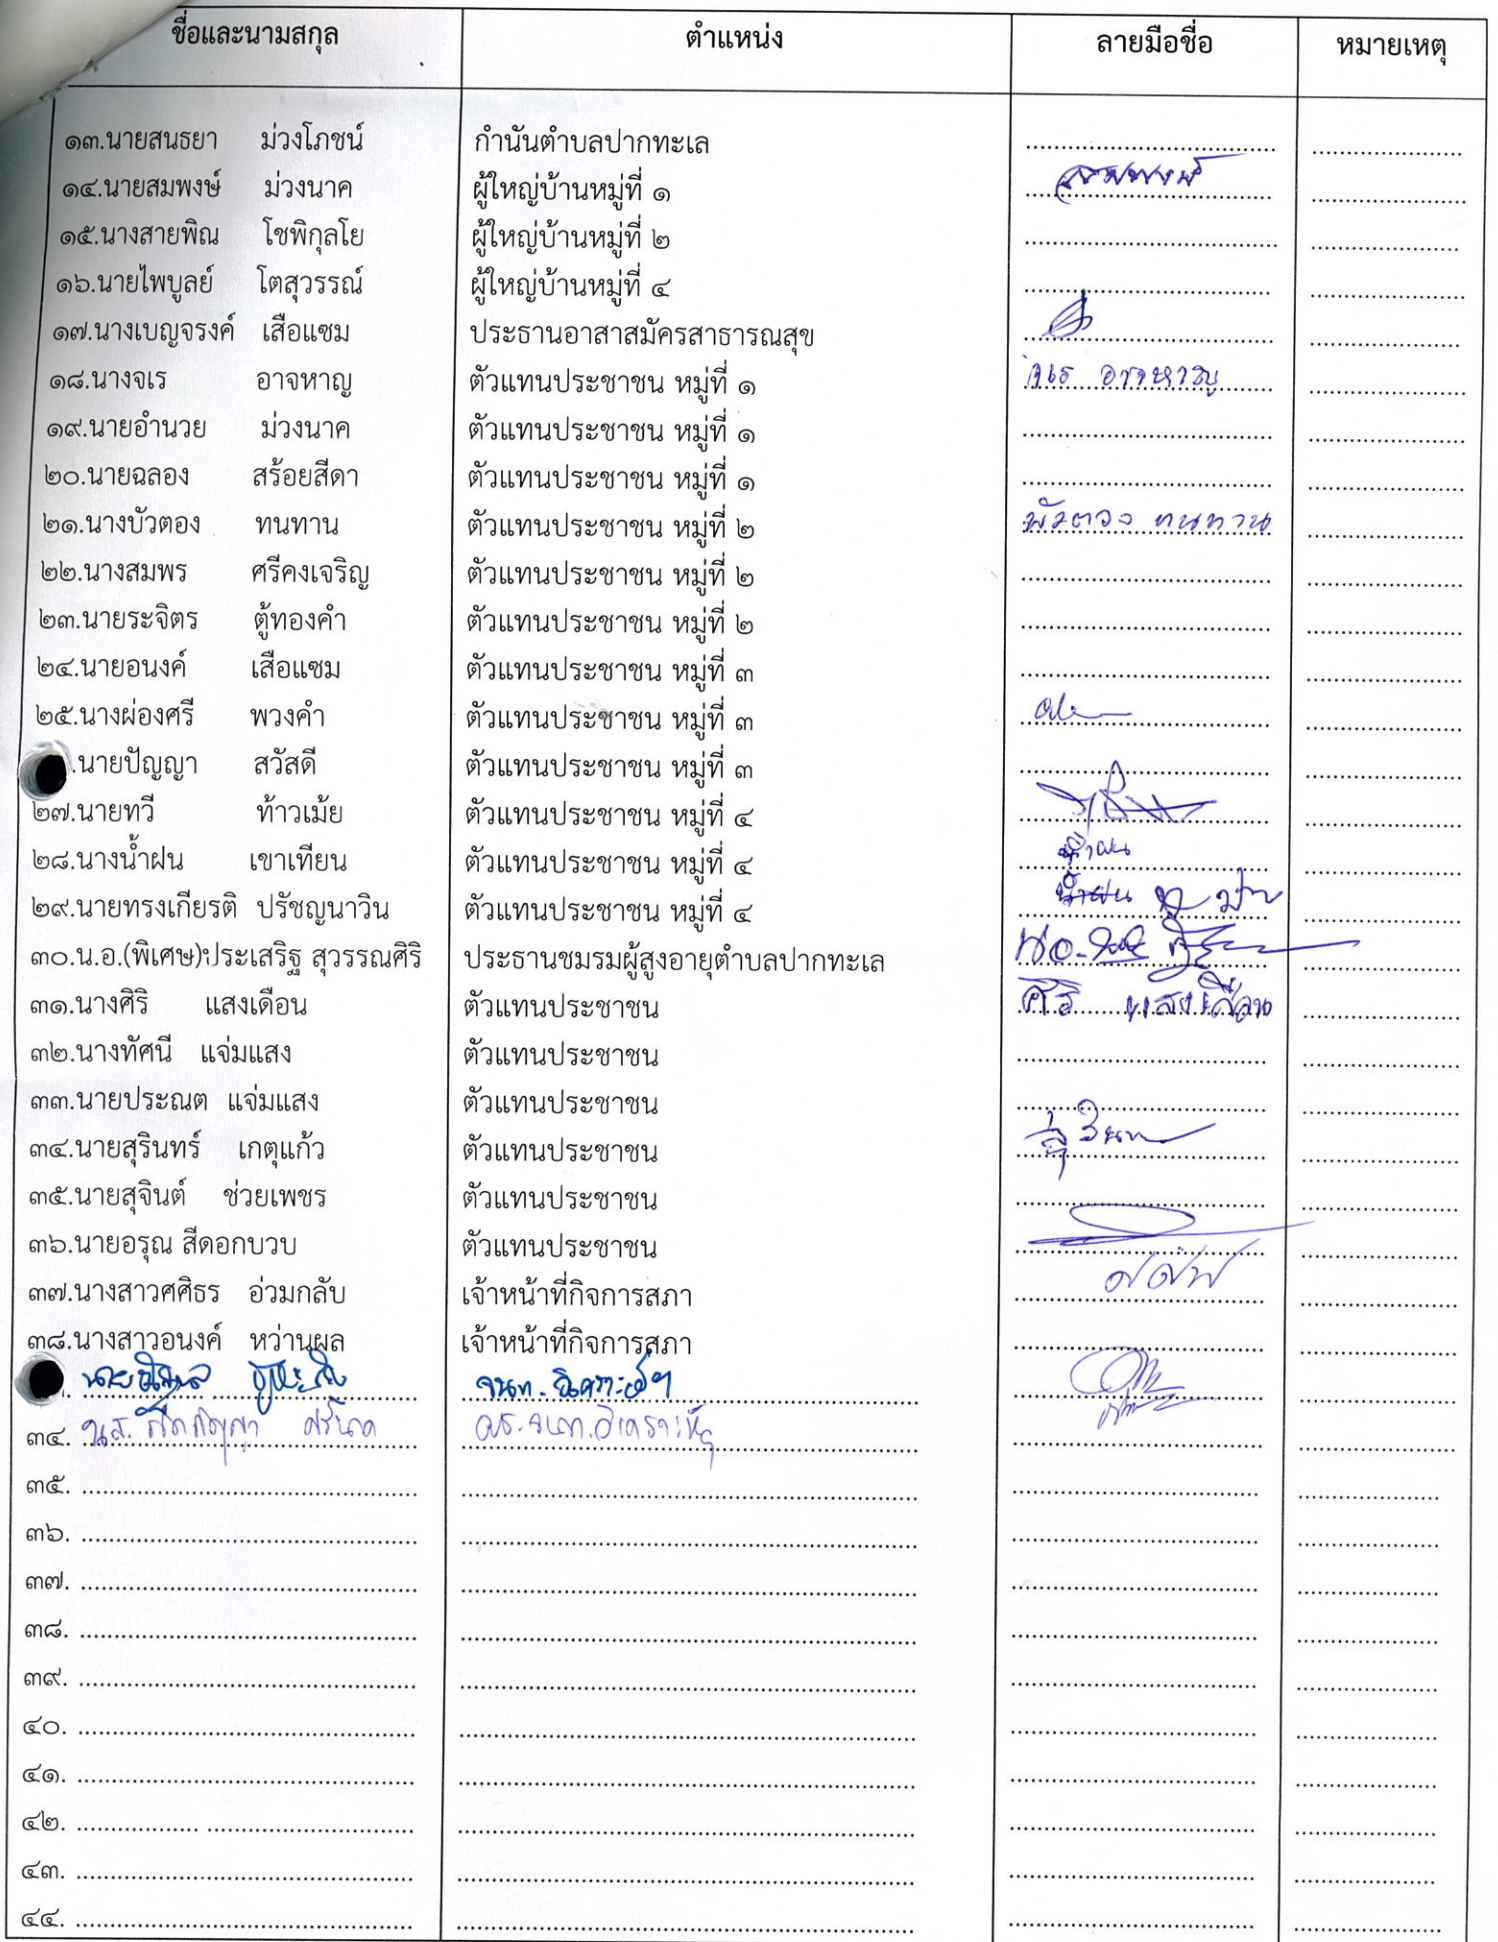 ชื่อและนามสกุล ตำแหน่ง ลายมือชื่อ หมายเหตุ
๑๓.นายสนธยา ม่วงโภชน์ กำนันตำบลปากทะเล
๑๔.นายสมพงษ์ ม่วงนาค ผู้ใหญ่บ้านหมู่ที่ ๑ สมพงษ์
๑๕.นางสายพิณ โชพิกุลโย ผู้ใหญ่บ้านหมู่ที่ ๒
๑๖.นายไพบูลย์ โตสุวรรณ์ ผู้ใหญ่บ้านหมู่ที่ ๔
๑๗.นางเบญจรงค์ เสือแซม ประธานอาสาสมัครสาธารณสุข
๑๘.นางจเร อาจหาญ ตัวแทนประชาชน หมู่ที่ ๑ จเร อาจหาญ
๑๙.นายอำนวย ม่วงนาค ตัวแทนประชาชน หมู่ที่ ๑
๒๐.นายฉลอง สร้อยสีดา ตัวแทนประชาชน หมู่ที่ ๑
๒๑.นางบัวตอง ทนทาน ตัวแทนประชาชน หมู่ที่ ๒ บัวตอง ทนทาน
๒๒.นางสมพร ศรีคงเจริญ ตัวแทนประชาชน หมู่ที่ ๒
๒๓.นายระจิตร ตู้ทองคำ ตัวแทนประชาชน หมู่ที่ ๒
๒๔.นายอนงค์ เสือแซม ตัวแทนประชาชน หมู่ที่ ๓
๒๕.นางผ่องศรี พวงคำ ตัวแทนประชาชน หมู่ที่ ๓
.นายปัญญา สวัสดี ตัวแทนประชาชน หมู่ที่ ๓
๒๗.นายทวี ท้าวเม้ย ตัวแทนประชาชน หมู่ที่ ๔
๒๘.นางน้ำฝน เขาเทียน ตัวแทนประชาชน หมู่ที่ ๔ น้ำฝน
๒๙.นายทรงเกียรติ ปรัชญนาวิน ตัวแทนประชาชน หมู่ที่ ๔
๓๐.น.อ.(พิเศษ)ประเสริฐ สุวรรณศิริ ประธานชมรมผู้สูงอายุตำบลปากทะเล
๓๑.นางศิริ แสงเดือน ตัวแทนประชาชน ศิริ แสงเดือน
๓๒.นางทัศนี แจ่มแสง ตัวแทนประชาชน
๓๓.นายประณต แจ่มแสง ตัวแทนประชาชน
๓๔.นายสุรินทร์ เกตุแก้ว ตัวแทนประชาชน
๓๕.นายสุจินต์ ช่วยเพชร ตัวแทนประชาชน
๓๖.นายอรุณ สีดอกบวบ ตัวแทนประชาชน
๓๗.นางสาวศศิธร อ่วมกลับ เจ้าหน้าที่กิจการสภา
๓๘.นางสาวอนงค์ หว่านผล เจ้าหน้าที่กิจการสภา
นาย จนท. วิเคราะห์ฯ
๓๔. น.ส. ผช.จนท.วิเคราะห์ฯ
๓๕.
๓๖.
๓๗.
๓๘.
๓๙.
๔๐.
๔๑.
๔๒.
๔๓.
๔๔.